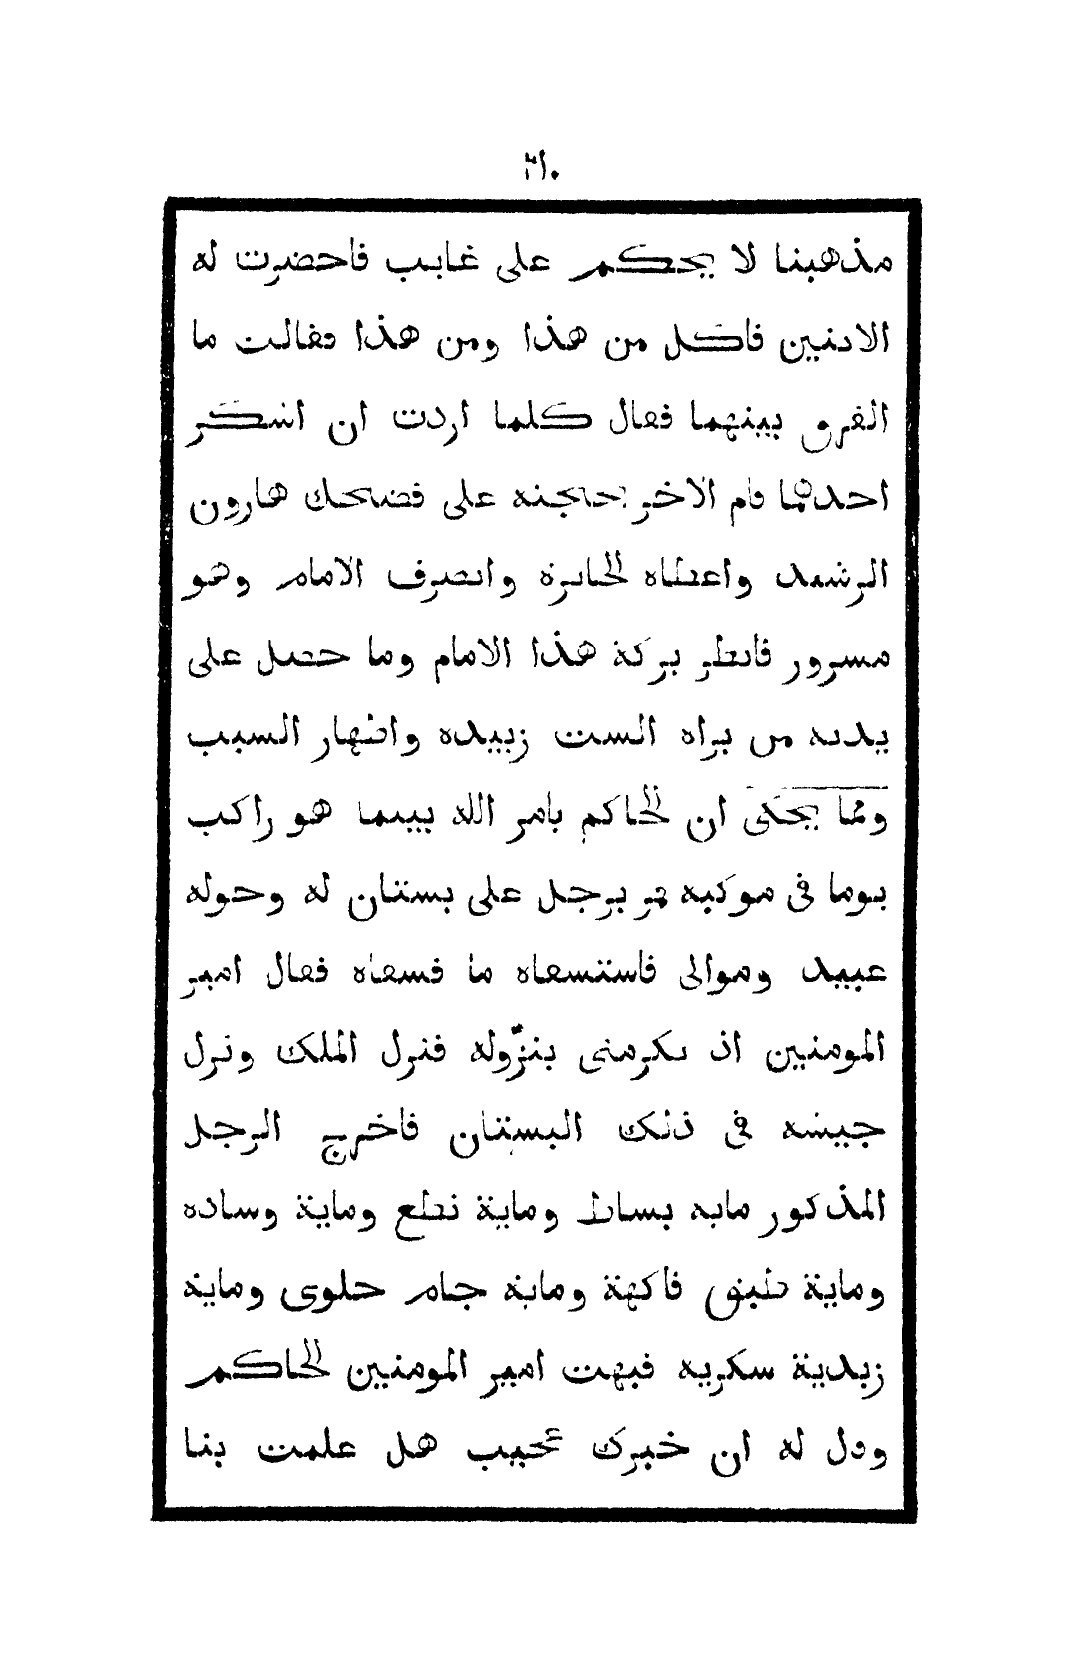 ٣١٠
مذهبنا لا يحكم على غايب فاحضرت له
الاثنين فاكل من هذا ومن هذا فقالت ما
الفرق بينهما فقال كلما اردت ان اشكر
احدهما قام الاخر بحجته على فضحك هارون
الرشيد واعطاه الجايزة وانصرف الامام وهو
مسرور فانظر بركة هذا الامام وما حصل على
يديه من براه الست زبيده واظهار السبب
ومما يحكى ان الحاكم بامر الله بينما هو راكب
يوما فى موكبه مر برجل على بستان له وحوله
عبيد وموالى فاستسقاه ما فسقاه فقال امير
المومنين ان يكرمنى بنزوله فنزل الملك ونزل
جيشه فى ذلك البستان فاخرج الرجل
المذكور مايه بساط وماية نطع وماية وساده
وماية طبق فاكهة وماية جام حلوى وماية
زبدية سكريه فبهت امير المومنين الحاكم
وقال له ان خبرك عجيب هل علمت بنا